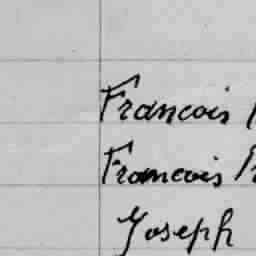 Francois
Francois
Joseph